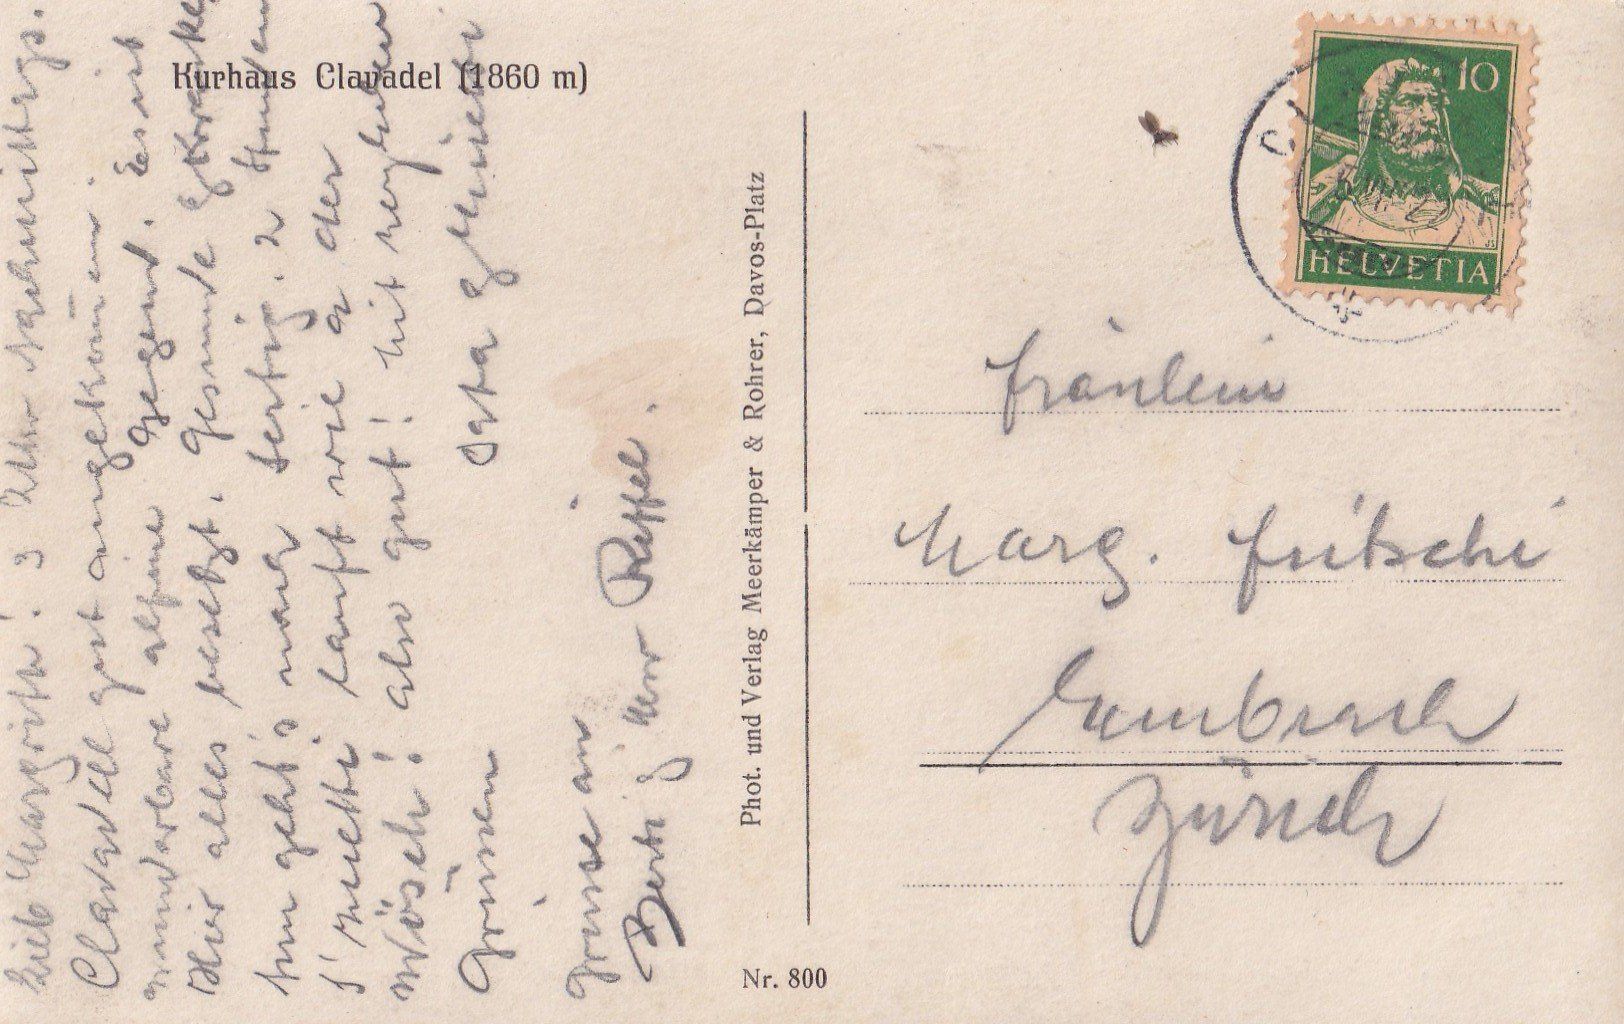 Kurhaus Clavadel (1860 m)
Lieb Margrith! 3 Uhr Nachmittags.
Clavadell gut angekom̄en. Es ist
wunderbare alpine Gegend.
Hier alles besetzt. Gesunde & Kranke
nun geht's nach Sertig, 2 Stunden
lauft wie a der
also gut! Mit
Grüssen
Grüsse an
Berti & Herr Riffel.
Phot. und Verlag Meerkämper & Rohrer, Davos-Platz
Nr. 800
10
HELVETIA
Fräulein
Marg. Fritschi
Embrach
Zürich